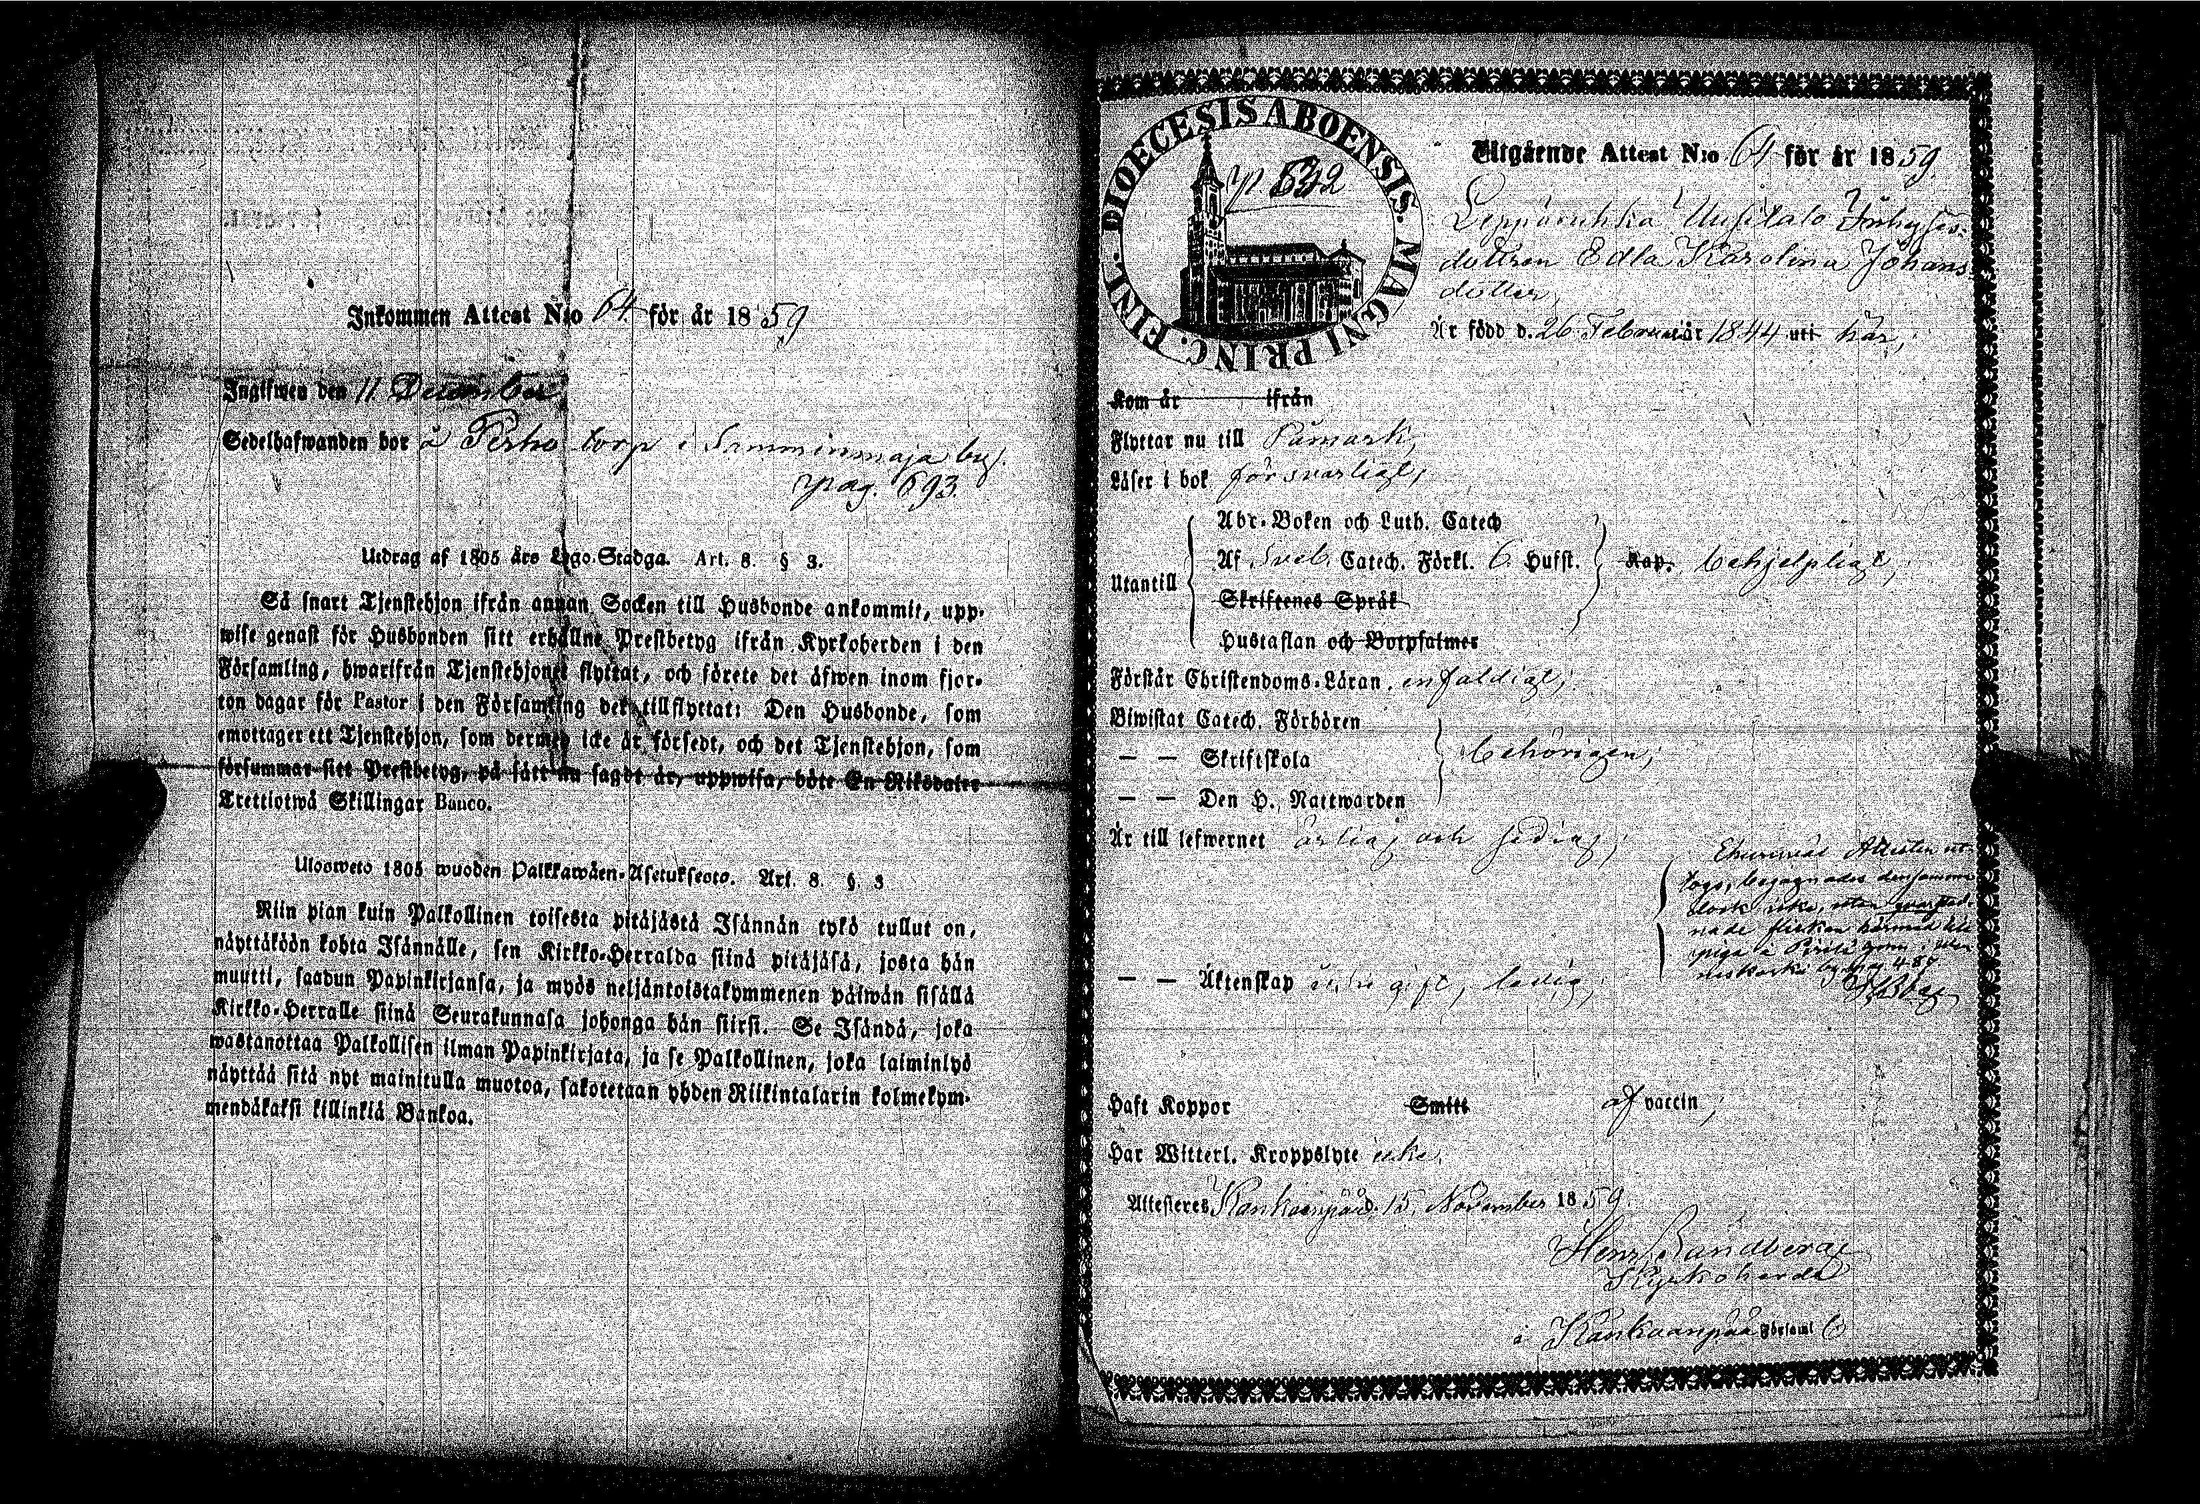 Inkommen Attest N:o 64 för år 1859
Ingifwen den 11 December
Sedelhafwanden bor å Perho torp i Samminmaja by.
pag. 693.
Utdrag af 1805 års Lego-Stadga. Art. 8. § 3.
Så snart Tjenstehjon ifrån annan Socken till Husbonde ankommit, upp-
wise genast för Husbonden sitt erhållne Prestbetyg ifrån Kyrkoherden i den
Församling, hwarifrån Tjenstehjonet flyttat, och förete det äfwen inom fjor-
ton dagar för Pastor i den Församling det tillflyttat: Den Husbonde, som
emottager ett Tjenstehjon, som dermed icke är försedt, och det Tjenstehjon, som
försummar sitt Prestbetyg, på sätt nu sagdt är, uppwisa, böte En Riksdaler
Trettiotwå Skillingar Banco.
Ulosweto 1805 wuoden Palkkawäen-Asetuksesta. Art. 8. §. 3
Niin pian kuin Palkollinen toisesta pitäjästä Isännän tykö tullut on,
näyttäköön kohta Isännälle, sen Kirkko-Herralda siinä pitäjäsä, josta hän
muutti, saadun Papinkirjansa, ja myös neljäntoistakymmenen päiwän sisällä
Kirkko-Herralle siinä Seurakunnasa johonga hän siirsi. Se Isändä, joka
wastanottaa Palkollisen ilman Papinkirjata, ja se Palkollinen, joka laiminlyö
näyttää sitä nyt mainitulla muotoa, sakotetaan yhden Riikintalarin kolmekym-
mendäkaksi killinkiä Bankoa.
DIOECESIS ABOENSIS. MAGNI PRINC. FINL.
p. 632
Utgående Attest N:o 64 för år 1859.
Leppäruhka Uusitalo Inhyses-
dottren Edla Karolina Johans-
dotter,
Är född d. 26 Februari år 1844 uti här,
Kom år ifrån
Flyttar nu till Påmark,
Läser i bok försvarligt,
Utantill
Abc-Boken och Luth. Catech
Af Sveb. Catech. Förkl. 6 Hufst.
Kap. behjelpligt,
Skriftenes Språk
Hustaflan och Botpsalmer
Förstår Christendoms-Läran enfaldigt,
Biwistat Catech. Förhören
— — Skriftskola
behörigen,
— — Den H. Nattwarden
Är till lefwernet ärlig och sedig,
Ehuruväl Attesten ut-
togs, begagnades densamma
dock icke, utan
nade flickan härmed
piga
by pag 487
— — Äktenskap icke gift, ledig,
Haft Koppor Smitt af vaccin,
Har Witterl. Kroppslyte icke.
Attesteres Kankaanpää d. 15 November 1859.
Henr Sandberg
Kyrkoherde
i Kankaanpää Församl